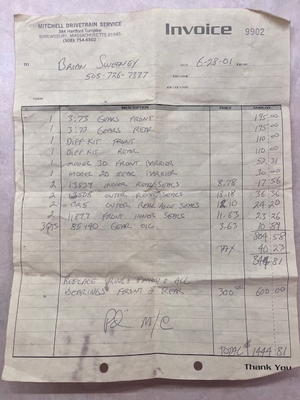 MITCHELL DRIVETRAIN SERVICE
384 Hartford Turnpike
SHREWSBURY, MASSACHUSETTS 01545
(508) 754-6502
Invoice 9902
TO
BRIAN SWEENEY
508-726-7377
DATE 6-28-01
TERMS
DESCRIPTION PRICE AMOUNT
1 3:73 GEARS FRONT 195 00
1 3:73 GEARS REAR 175 00
1 DIFF KIT FRONT 110 00
1 DIFF KIT REAR 110 00
1 MODEL 30 FRONT CARRIER 52.31
1 MODEL 20 REAR CARRIER 30 00
2 INNER SEALS 8.78 17.56
2 OUTER SEALS 18.18 36.36
2 OUTER REAR AXLE SEALS 12.10 24.20
2 FRONT INNER SEALS 11.63 23.26
3 QTS 85W90 GEAR OIL 3.63 10.89
804.58
TAX 40.23
844.81
REPLACE & ALL
BEARINGS FRONT & REAR 300.00 600.00
Pd M/C
TOTAL $1444.81
Thank You